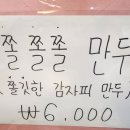 쫄쫄쫄 만두
(쫄깃한 감자피 만두)
₩6,000